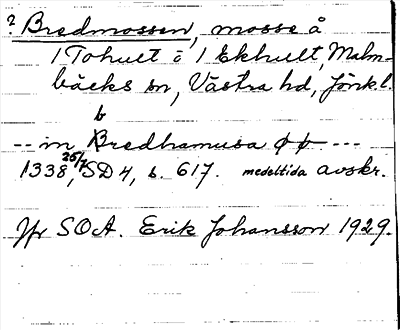 ? Bredmossen, mosse å
1 Tohult o 1 Ekhult, Malm-
bäcks sn, Västra hd, Jönk. l.
b
-- in Bredhamusa ---
1338 25/7, SD 4, s. 617. medeltida avskr.
Jfr SOA. Erik Johansson 1929.